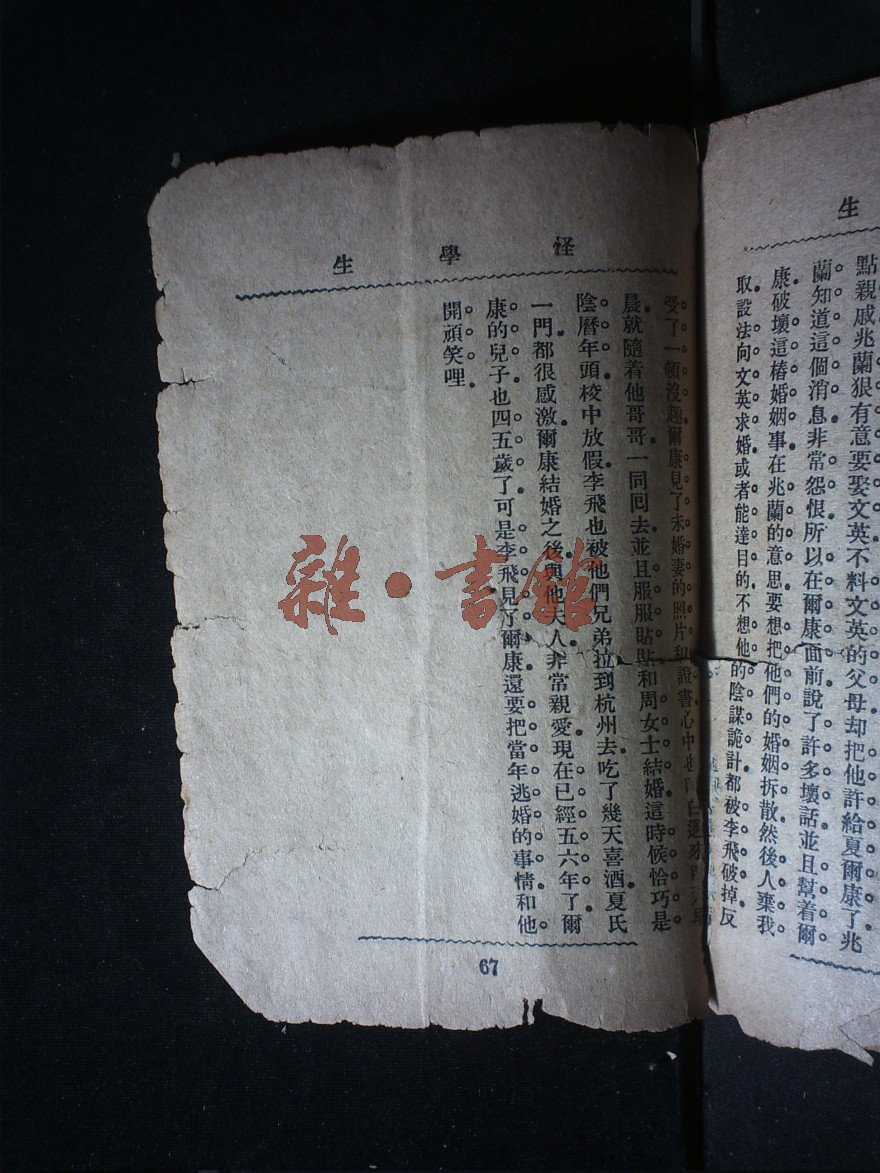 生
點親戚兆蘭狠有意要娶文英不料文英的父母却把他許給夏爾康了兆
蘭知道這個消息非常怨恨所以在爾康面前說了許多壞話並且幫着爾
康破壞這樁婚姻事在兆蘭的意思要想把他們的婚姻拆散然後人棄我
取設法向文英求婚或者能達目的不想他的陰謀詭計都被李飛破掉反
怪學生
受了一頓沒趣爾康見了未婚妻的照片和證書心中也
晨就隨着他哥哥一同回去並且服服貼貼和周女士結婚這時候恰巧是
陰曆年頭校中放假李飛也被他們兄弟拉到杭州去吃了幾天喜酒夏氏
一門都很感激爾康結婚之後與他夫人非常親愛現在已經五六年了爾
康的兒子也四五歲了可是李飛見了爾康還要把當年逃婚的事情和他
開頑笑哩
67
雜·書館